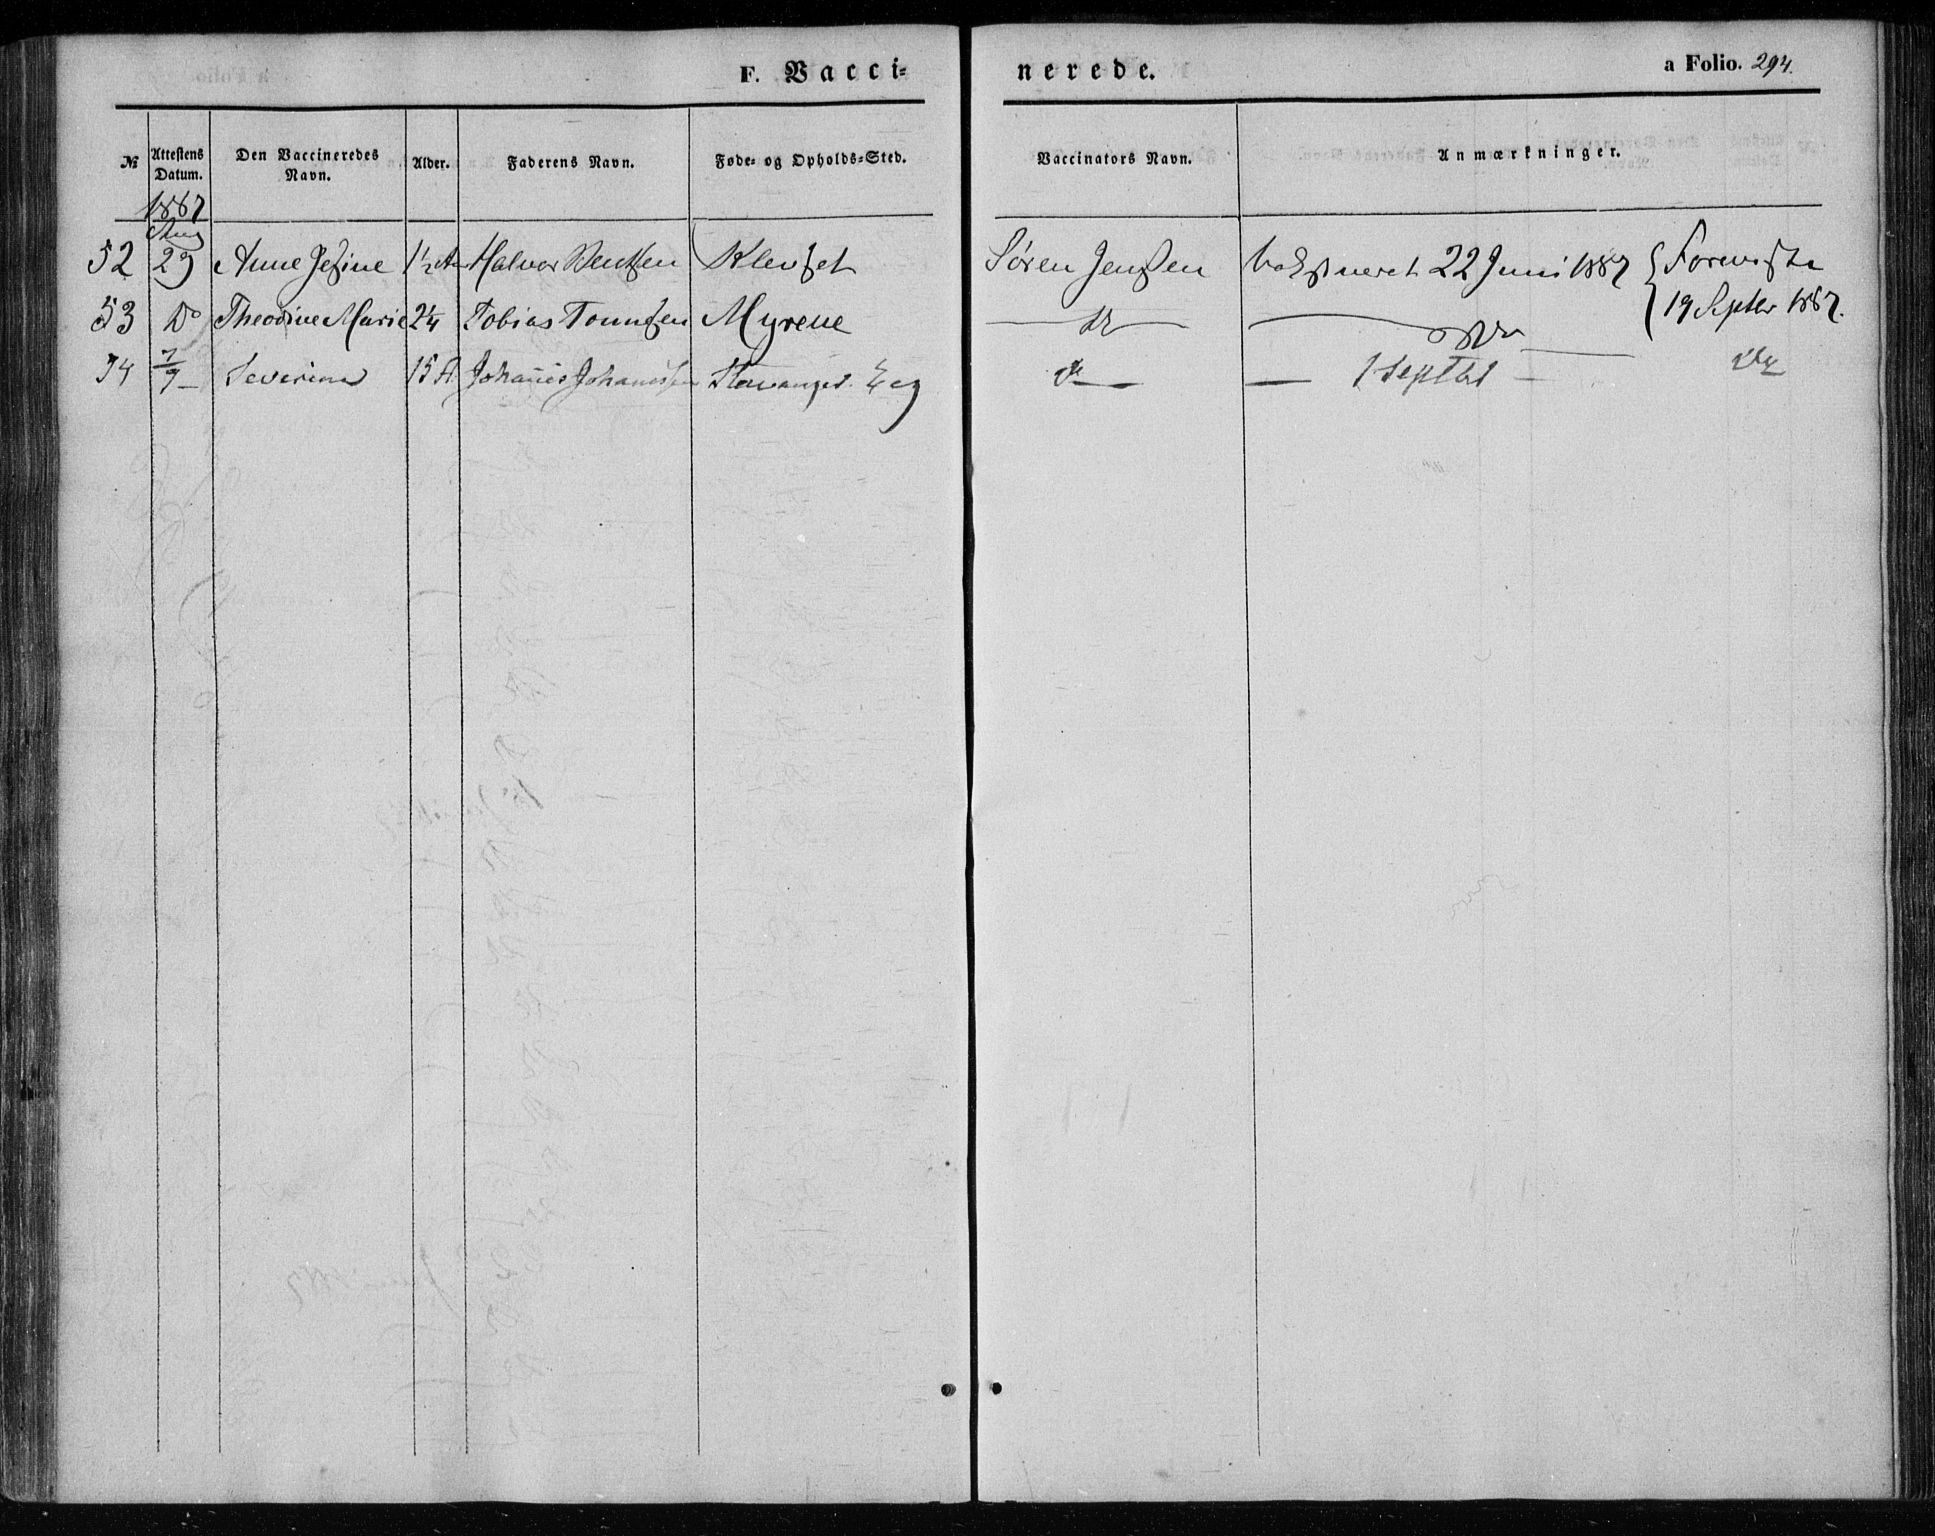 F. Vacci= nerede. a Folio. 294.
№ Attestens Datum. Den Vaccineredes Navn. Alder. Faderens Navn. Føde= og Opholds=Sted. Vaccinators Navn. Anmærkninger.
1867
Aug
52 29 Anne Jesine 1½ A Halvor Bentsen Klevset Søren Jenssen 22 Juni 1867 { Foreviste
53 Do Theodine Marie 2¼ Tobias Tønnesen Myrene 19 Septbr 1867.
54 7/9 Severine 15 A Johannes Johannessen Stavanger Eeg 1 Septbr